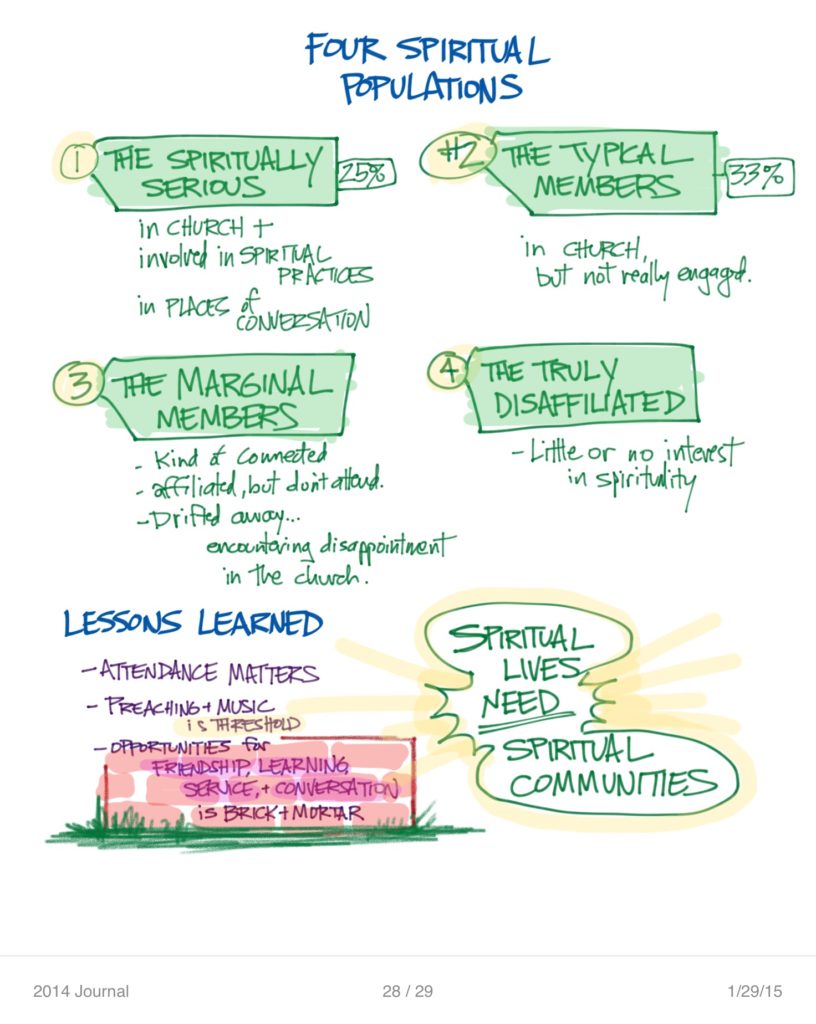 FOUR SPIRITUAL
POPULATIONS
1 THE SPIRITUALLY
SERIOUS
25%
in CHURCH +
involved in SPIRITUAL
PRACTICES
in PLACES of
CONVERSATION
#2 THE TYPICAL
MEMBERS
33%
in CHURCH,
but not really engaged.
3 THE MARGINAL
MEMBERS
- Kind of Connected
- affiliated, but don't attend.
- Drifted away...
encountering disappointment
in the church.
4 THE TRULY
DISAFFILIATED
- Little or no interest
in spirituality
LESSONS LEARNED
- ATTENDANCE MATTERS
- PREACHING + MUSIC
is THRESHOLD
- OPPORTUNITIES for
FRIENDSHIP, LEARNING,
SERVICE, + CONVERSATION
is BRICK + MORTAR
SPIRITUAL
LIVES
NEED
SPIRITUAL
COMMUNITIES
2014 Journal
28 / 29
1/29/15